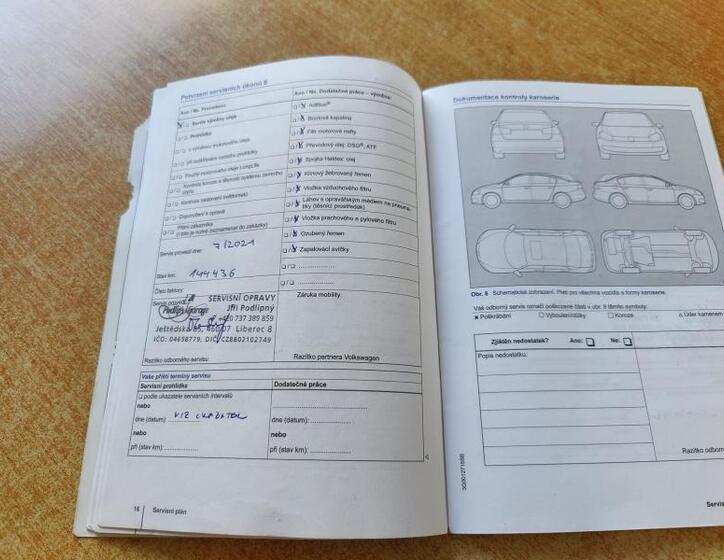 Potvrzení servisních úkonů 6
Ano / Ne, Provedeno:
Servis výměny oleje
Prohlídka
s výměnou motorového oleje
při dodržování rozsahu prohlídky
Použitý motorový oleje LongLife
Kontrola koroze
Kontrola nastavení světlometů
Doporučení k opravě
Přání zákazníka
(i toto je nutné zaznamenat do zakázky)
Servis proveď dne: 7/2021
Stav km: 144436
Číslo faktury:
Servis provedl:
Podlipný garage
SERVISNÍ OPRAVY
Jiří Podlipný
+420 737 389 859
Ještědská 85, 46007 Liberec 8
IČO: 04658779, DIČ: CZ8802102749
Razítko odborného servisu
Ano / Ne, Dodatečné práce – výměna:
AdBlue®
Brzdová kapalina
Filtr motorové nafty
Převodový olej: DSG®, ATF
Spojka Haldex: olej
Klínový žebrovaný řemen
Vložka vzduchového filtru
Láhev s opravářským médiem na pneumatiky
(těsnicí prostředek)
Vložka prachového a pylového filtru
Ozubený řemen
Zapalovací svíčky
Záruka mobility:
Razítko partnera Volkswagen
Vaše příští termíny servisu
Servisní prohlídka
podle ukazatele servisních intervalů
nebo
dne (datum):
nebo
při (stav km):
Dodatečné práce
dne (datum):
nebo
při (stav km):
16
Servisní plán
Dokumentace kontroly karoserie
Obr. 8 Schematické zobrazení. Platí pro všechna vozidla a formy karoserie.
Váš odborný servis označí poškozené části v obr. 8 těmito symboly:
x Poškrábání
Vybouleniny
Koroze
Úder kamenem
Zjištěn nedostatek? Ano: Ne:
Popis nedostatku:
Razítko odborn
Servis